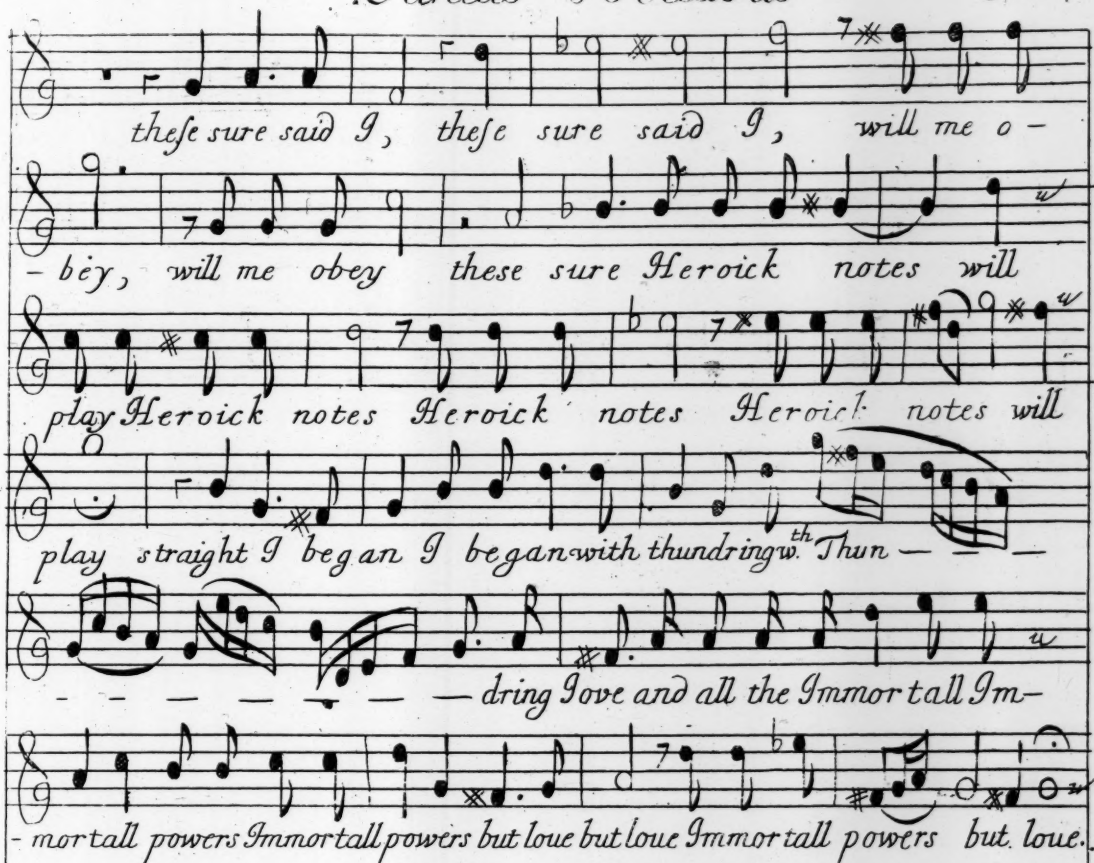 these sure said I, these sure said I, will me o-
-bey, will me obey these sure Heroick notes will
play Heroick notes Heroick notes Heroick notes will
play straight I began I began with thundring w.th Thun — — —
— — — — — — — dring Iove and all the Immor tall Im-
-mortall powers Immortall powers but loue but loue Immortall powers but loue.